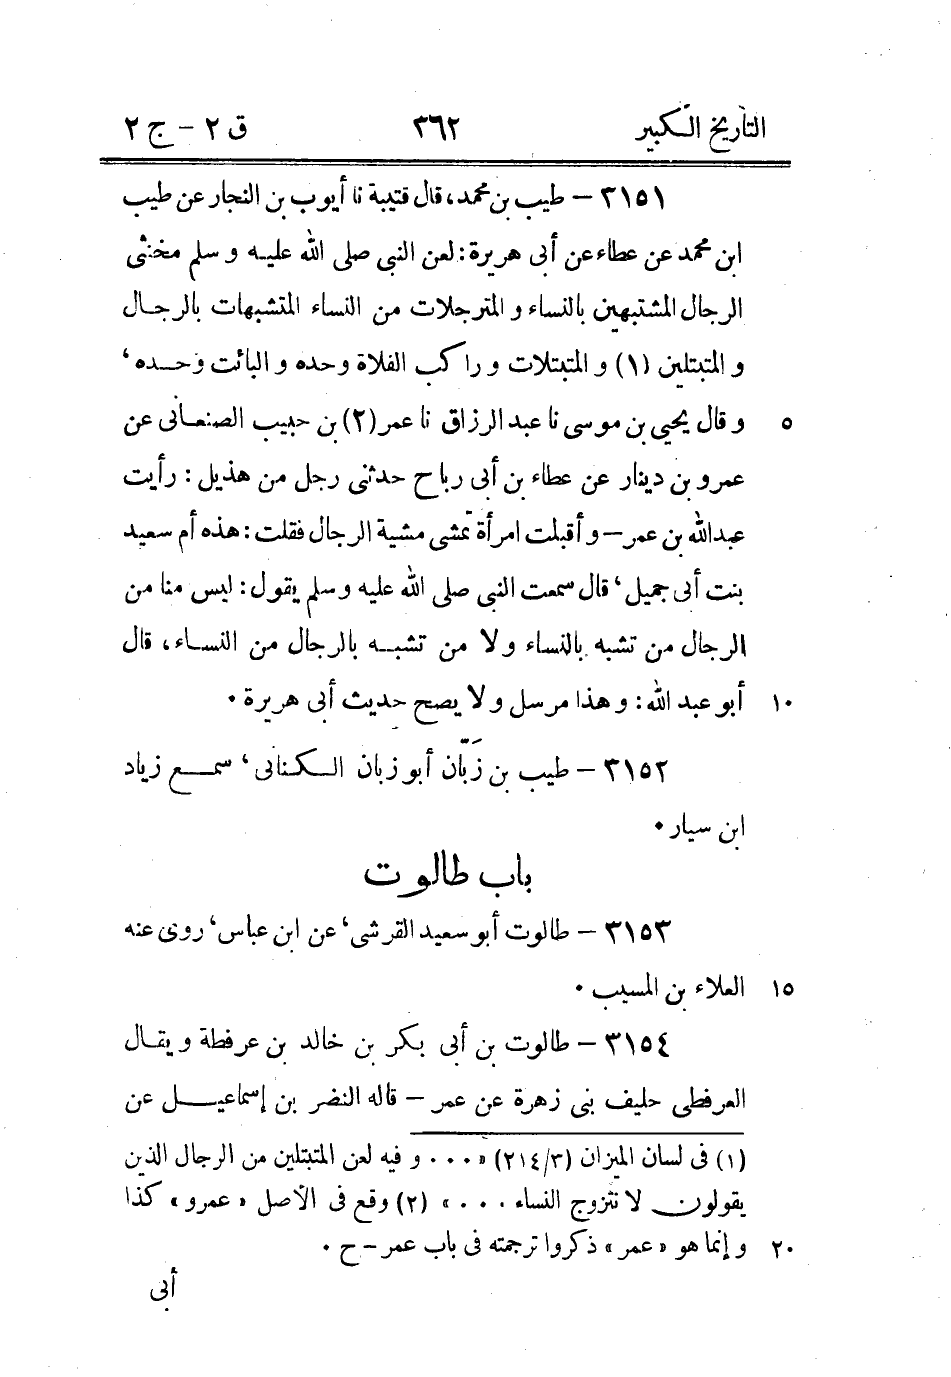 التأريخ الكبير ٣٦٢ ق ٢ - ج ٢
٣١٥١ - طيب بن محمد، قال قتيبة نا أيوب بن النجار عن طيب
ابن محمد عن عطاء عن أبى هريرة: لعن النبى صلى الله عليه و سلم مخنثى
الرجال المشتبهين بالنساء و المترجلات من النساء المتشبهات بالرجال
و المتبتلين (١) و المتبتلات و راكب الفلاة وحده و البائت وحده،
٥ و قال يحيى بن موسى نا عبد الرزاق نا عمر (٢) بن حبيب الصنعانى عن
عمرو بن دينار عن عطاء بن أبى رباح حدثنى رجل من هذيل: رأيت
عبدالله بن عمر - و أقبلت امرأة تمشى مشية الرجال فقلت: هذه أم سعيد
بنت أبى جميل، قال سمعت النبى صلى الله عليه وسلم يقول: ليس منا من
الرجال من تشبه بالنساء ولا من تشبه بالرجال من النساء، قال
١٠ أبو عبد الله: و هذا مرسل و لا يصح حديث أبى هريرة ٠
٣١٥٢ - طيب بن زَبّان أبو زبان الكنانى، سمع زياد
ابن سيار ٠
باب طالوت
٣١٥٣ - طالوت أبو سعيد القرشى، عن ابن عباس، روى عنه
١٥ العلاء بن المسيب ٠
٣١٥٤ - طالوت بن أبى بكر بن خالد بن عرفطة و يقال
العرفطى حليف بنى زهرة عن عمر - قاله النضر بن إسماعيل عن
(١) فى لسان الميزان (٢١٤/٣) «٠٠٠ و فيه لعن المتبتلين من الرجال الذين
يقولون لا نتزوج النساء ٠٠٠» (٢) وقع فى الأصل «عمرو» كذا
٢٠ و إنما هو «عمر» ذكروا ترجمته فى باب عمر - ح ٠
أبى